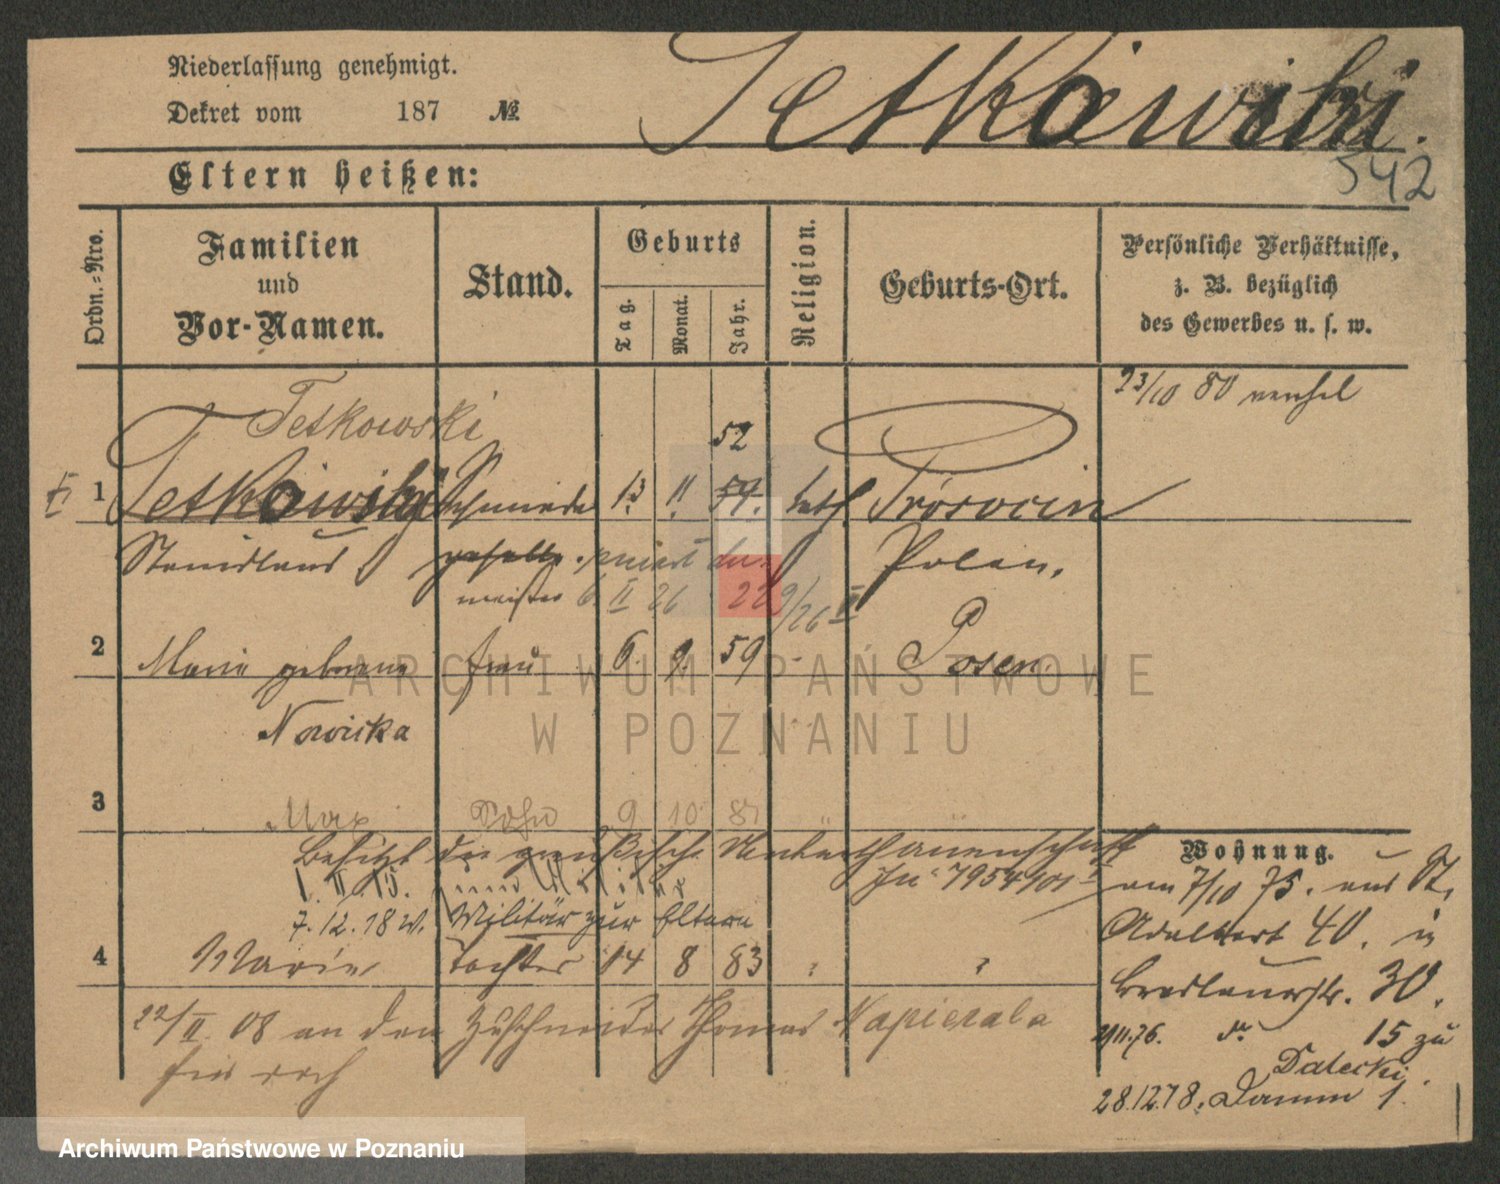 Niederlassung genehmigt.
Dekret vom 187 №
Tetkowski.
542
Eltern heißen:
Ordn.=Nro.
Familien
und
Vor-Namen.
Stand.
Geburts
Tag.
Monat.
Jahr.
Religion.
Geburts-Ort.
Persönliche Verhältnisse,
z. B. bezüglich
des Gewerbes u. s. w.
23/10 80
Tetkowski
52
1 Tetkowski Schmiede 13 11 54. kath.
Stanislaus geselle Polen.
meister 6 II 26
2 Marie geborene Frau 6. 9. 59 Posen.
Nowicka
3 Max Sohn 9 10 81 "
Besitzt die preußische Unterthanenschaft
1. II. 15.
7. 12. 18 Militär zur Eltern
4 Marie Tochter 14 8 83
22/II 08 an den Zuschneider Thomas Napierala
Wohnung.
am 7/10 75. aus St.
Adalbert 40. in
Breslauerstr. 30.
15 zu
Datecki.
28.12.78. Damm 1.
ARCHIWUM PAŃSTWOWE
W POZNANIU
Archiwum Państwowe w Poznaniu